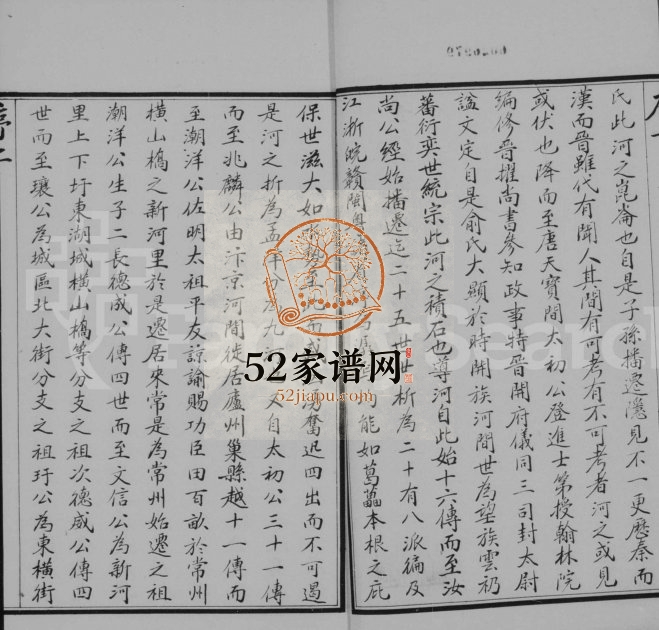 氏此河之崑崙也自是子孫播遷隱見不一更歷秦而
漢而晉雖代有聞人其間有可考有不可考者河之或見
或伏也降而至唐天寶間太初公登進士第授翰林院
編修晉擢尚書參知政事特晉開府儀同三司封太尉
諡文定自是俞氏大顯於時開族河間世為望族雲礽
蕃衍奕世統宗此河之積石也導河自此始十六傳而至汝
尚公經始播遷迄二十五世世析為二十有八派徧及
江浙皖贛閩粵能如葛藟本根之庇
保世滋大如而成奮迅四出而不可遏
是河之折為孟自太初公三十一傳
而至兆麟公由汴京河間徙居廬州巢縣越十一傳而
至潮洋公佐明太祖平友諒諭賜功臣田百畝於常州
橫山橋之新河里於是遷居來常是為常州始遷之祖
潮洋公生子二長德成公傳四世而至文信公為新河
里上下圩東湖城橫山橋等分支之祖次德咸公傳四
世而至瓌公為城區北大街分支之祖玗公為東橫街
52家谱网
52jiapu.com